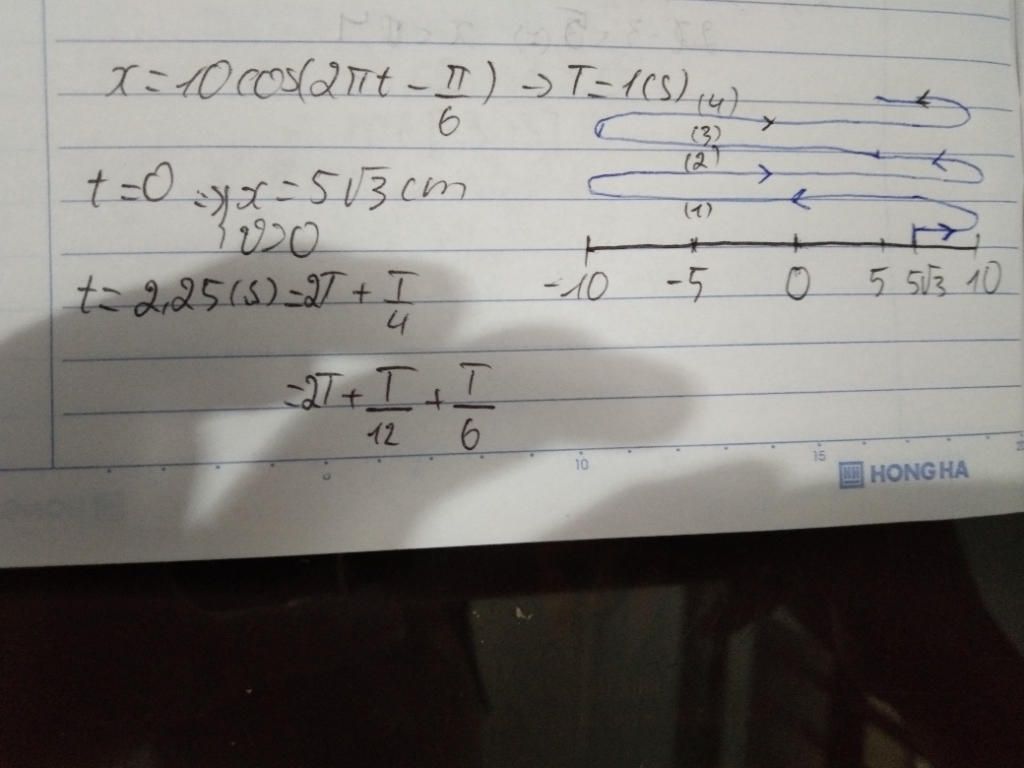 x = 10cos(2πt - π/6) → T = 1(s)
t = 0 ⇒ { x = 5√3 cm
v>0
t = 2,25(s) = 2T + T/4
= 2T + T/12 + T/6
(4)
(3)
(2)
(1)
-10 -5 0 5 5√3 10
10 15
HH HONG HA